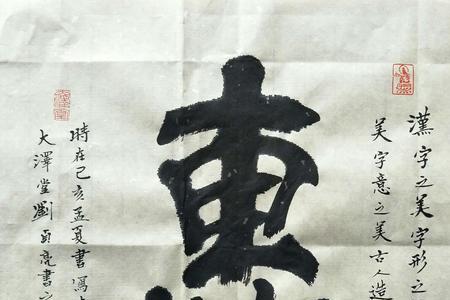 漢字之美字形之
美字意之美古人造
惠
時在己亥孟夏書寫
大澤堂劉貞亮書